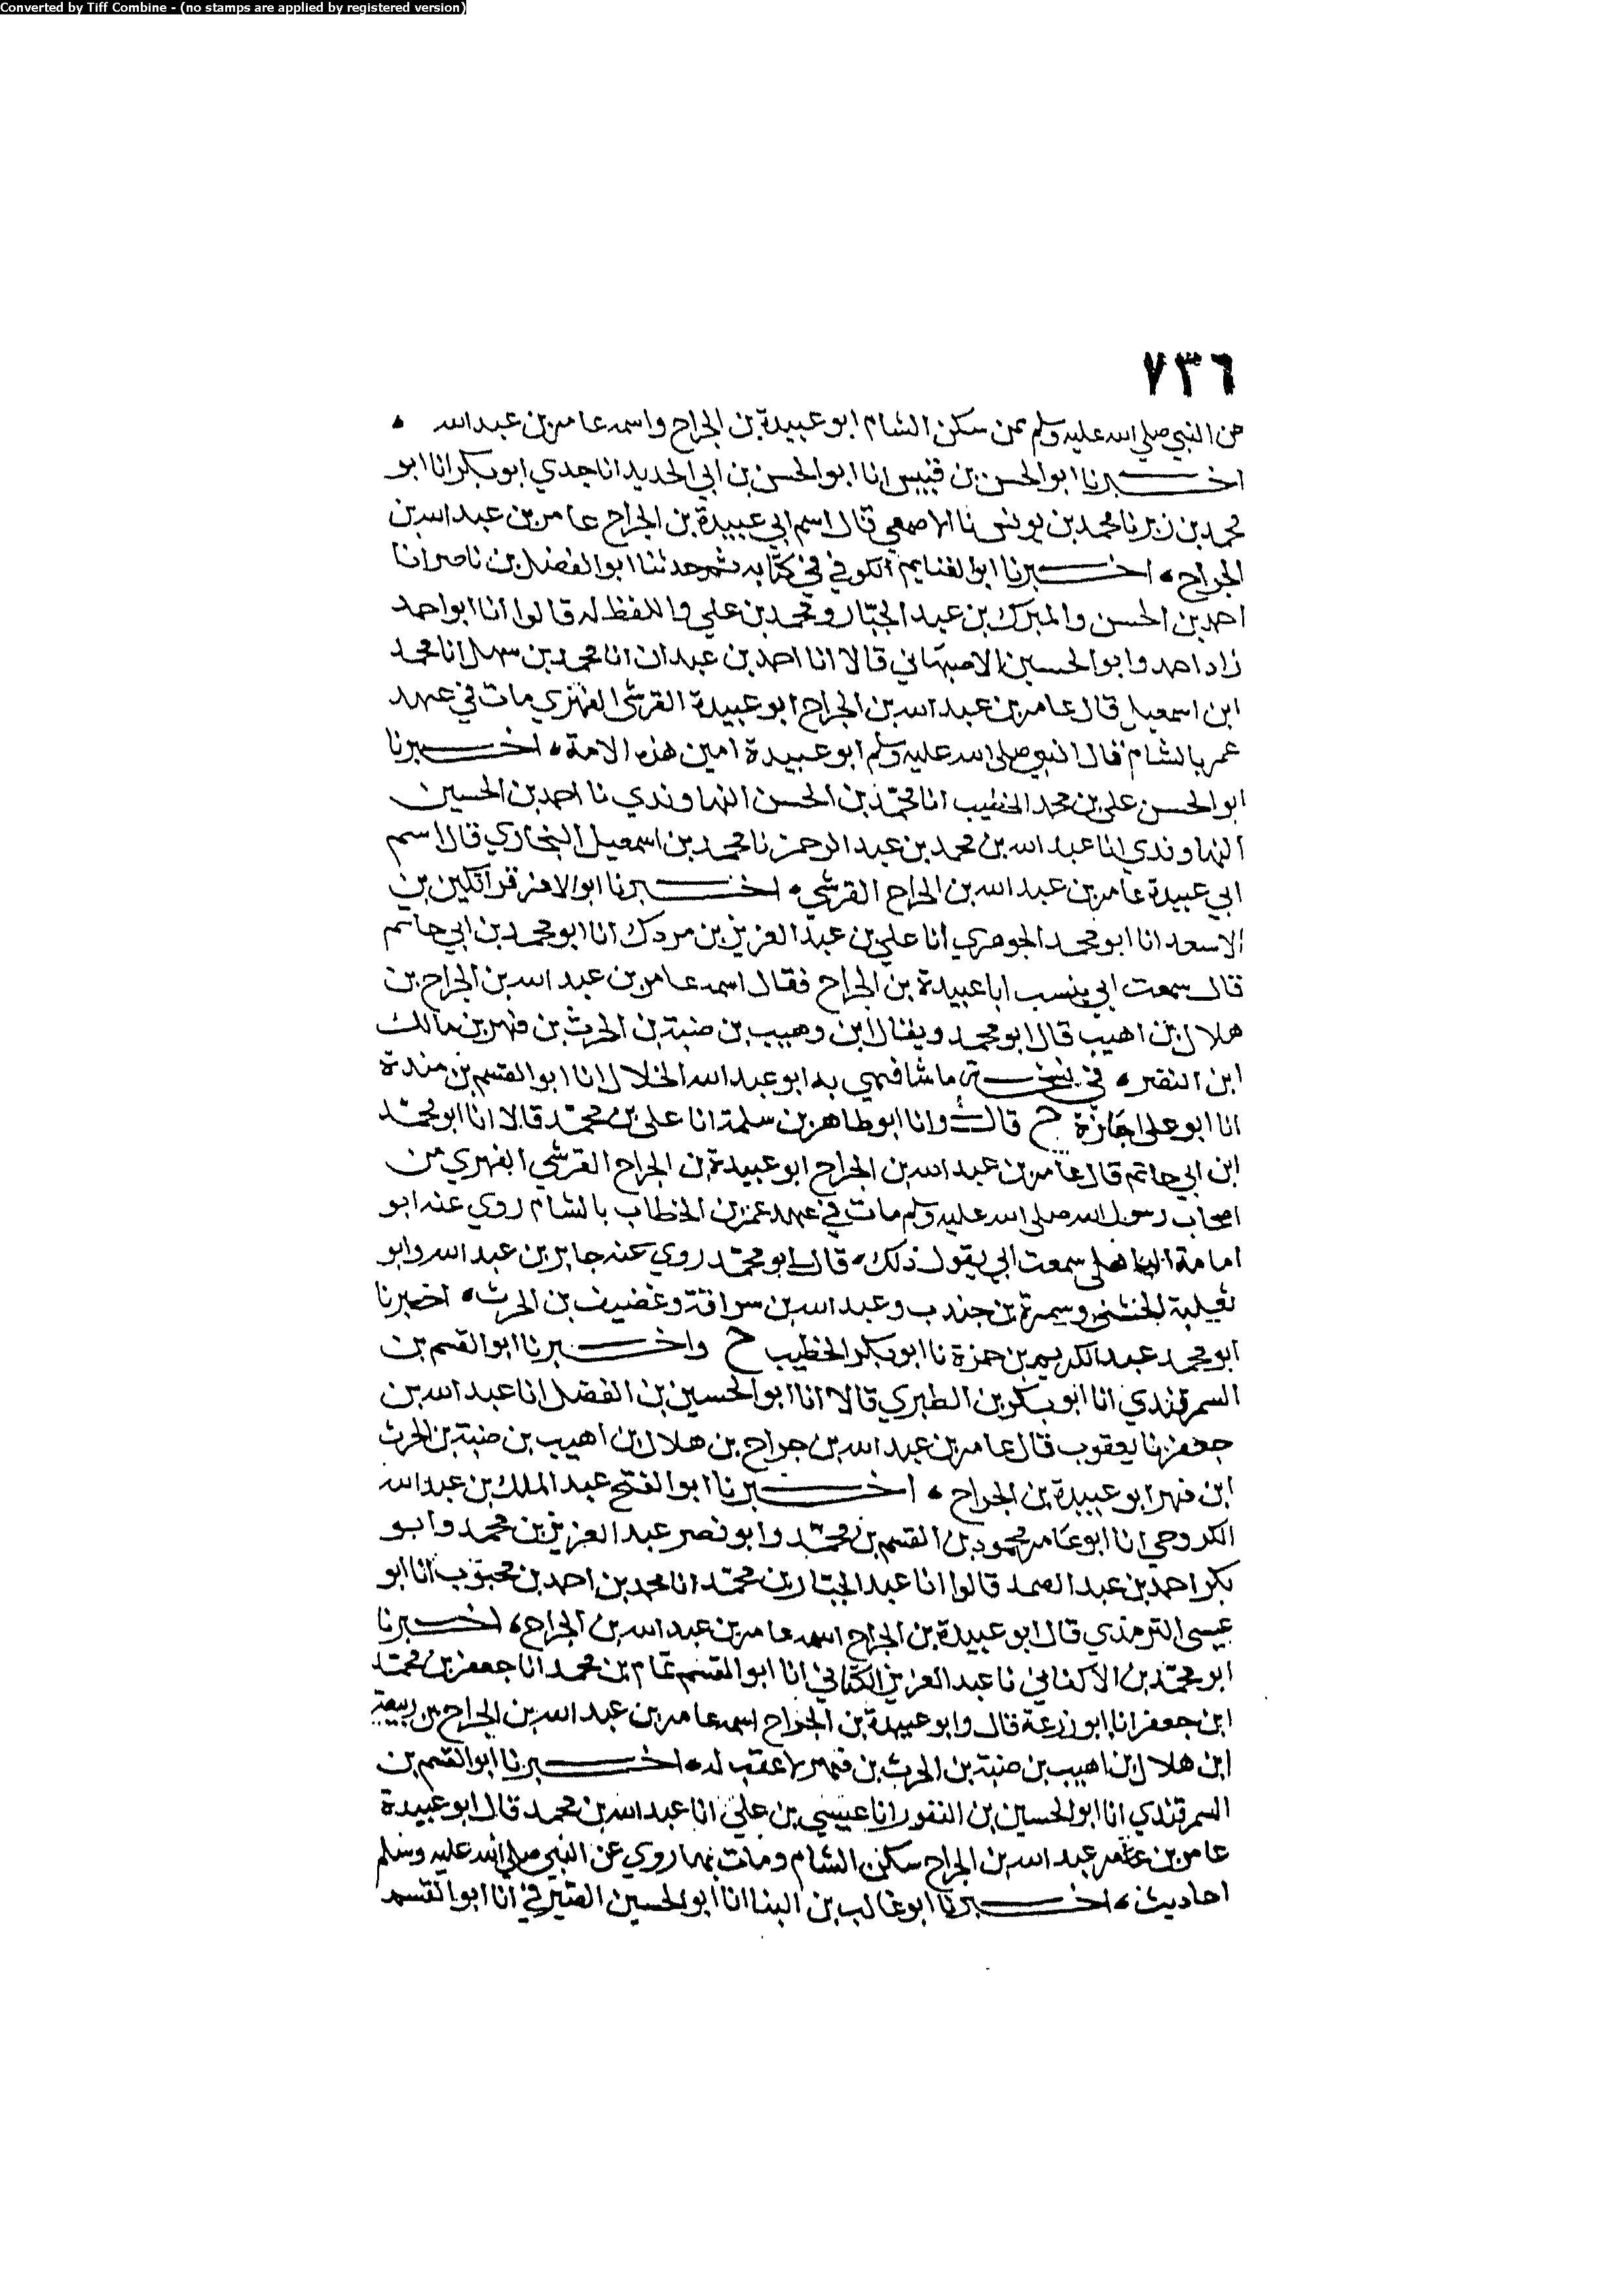 Converted by Tiff Combine - (no stamps are applied by registered version)
٧٣٦
عن النبي صلى الله عليه وسلم ممن سكن الشام ابو عبيدة بن الجراح واسمه عامر بن عبد الله ٠
اخبرنا ابو الحسن بن قبيس انا ابو الحسن بن ابي الحديد انا جدي ابو بكر انا ابو
محمد بن زبر نا محمد بن يونس نا الاصمعي قال اسم ابي عبيدة بن الجراح عامر بن عبد الله بن
الجراح ٠ اخبرنا ابو الغنايم الكوفي في كتابه ثم حدثنا ابو الفضل بن ناصر انا
احمد بن الحسن والمبرك بن عبد الجبار ومحمد بن علي واللفظ له قالوا انا ابو احمد
زاد احمد وابو الحسين الاصبهاني قالا انا احمد بن عبدان انا محمد بن سهل انا محمد
ابن اسمعيل قال عامر بن عبد الله بن الجراح ابو عبيدة القرشي الفهري مات في عهد
عمر بالشام قال النبي صلى الله عليه وسلم ابو عبيدة امين هذه الامة ٠ اخبرنا
ابو الحسن علي بن محمد الخطيب انا محمد بن الحسن النهاوندي نا احمد بن الحسين
النهاوندي انا عبد الله بن محمد بن عبد الرحمن نا محمد بن اسمعيل البخاري قال اسم
ابي عبيدة عامر بن عبد الله بن الجراح القرشي ٠ اخبرنا ابو الاعز قراتكين بن
الاسعد انا ابو محمد الجوهري انا علي بن عبد العزيز بن مردك انا ابو محمد بن ابي حاتم
قال سمعت ابي ينسب ابا عبيدة بن الجراح فقال اسمه عامر بن عبد الله بن الجراح بن
هلال بن اهيب قال ابو محمد ويقال ابن وهيب بن ضبة بن الحرث بن فهر بن مالك
ابن النضر ٠ في نسخة ما شافهني به ابو عبد الله الخلال انا ابو القسم بن مندة
انا ابو علي اجازة ح قال وانا ابو طاهر بن سلمة انا علي بن محمد قالا انا ابو محمد
ابن ابي حاتم قال عامر بن عبد الله بن الجراح ابو عبيدة بن الجراح القرشي الفهري من
اصحاب رسول الله صلى الله عليه وسلم مات في عهد عمر بن الخطاب بالشام روي عنه ابو
امامة الباهلي سمعت ابي يقول ذلك ٠ قال ابو محمد روي عنه جابر بن عبد الله وابو
ثعلبة الخشني وسمرة بن جندب وعبد الله بن سراقة وغضيف بن الحرث ٠ اخبرنا
ابو محمد عبد الكريم بن حمزة نا ابو بكر الخطيب ح واخبرنا ابو القسم بن
السمرقندي انا ابو بكر بن الطبري قالا انا ابو الحسين بن الفضل انا عبد الله بن
جعفر نا يعقوب قال عامر بن عبد الله بن جراح بن هلال بن اهيب بن ضبة بن الحرث
ابن فهر ابو عبيدة بن الجراح ٠ اخبرنا ابو الفتح عبد الملك بن عبد الله
الكروخي انا ابو عامر محمود بن القسم بن محمد وابو نصر عبد العزيز بن محمد وابو
بكر احمد بن عبد الصمد قالوا انا عبد الجبار بن محمد انا محمد بن احمد بن محبوب انا ابو
عيسى الترمذي قال ابو عبيدة بن الجراح اسمه عامر بن عبد الله بن الجراح ٠ اخبرنا
ابو محمد بن الاكفاني نا عبد العزيز الكتاني انا ابو القسم تمام بن محمد انا جعفر بن محمد
ابن جعفر انا ابو زرعة قال وابو عبيدة بن الجراح اسمه عامر بن عبد الله بن الجراح بن ربيعة
ابن هلال بن اهيب بن ضبة بن الحرث بن فهر لا عقب له ٠ اخبرنا ابو القسم بن
السمرقندي انا ابو الحسين بن النقور انا عيسى بن علي انا عبد الله بن محمد قال ابو عبيدة
عامر بن عبد الله بن الجراح سكن الشام ومات بها روي عن النبي صلى الله عليه وسلم
احاديث ٠ اخبرنا ابو غالب بن البنا انا ابو الحسين الصيرفي انا ابو القسم